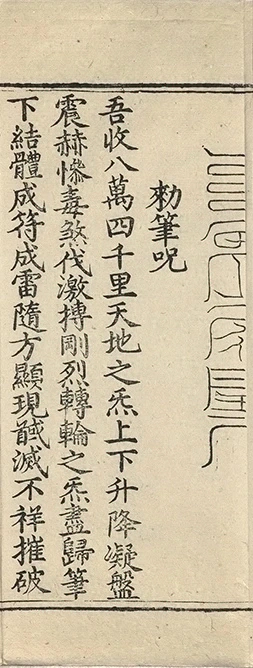 勑筆呪
吾收八萬四千里天地之炁上下升降凝盤
震赫慘毒煞伐激搏剛烈轉輪之炁盡歸筆
下結體成符成雷隨方顯現馘滅不祥摧破